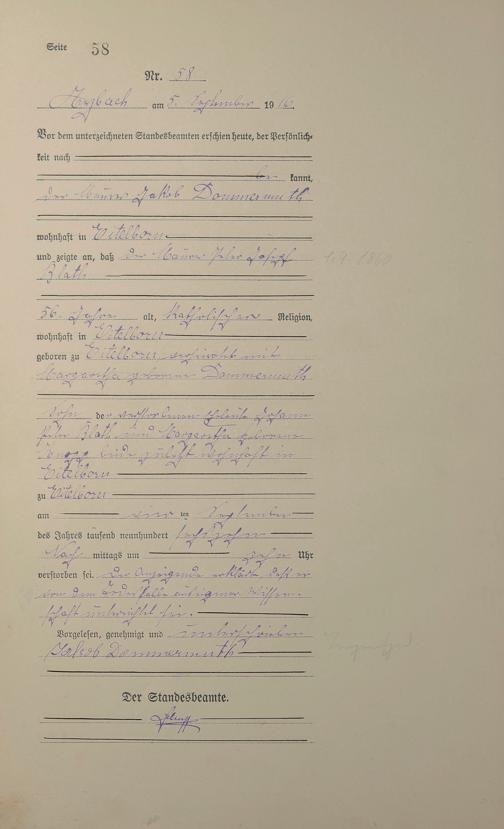 Seite 58
Nr. 58
Arzbach am 5. September 1916.
Vor dem unterzeichneten Standesbeamten erschien heute, der Persönlich-
keit nach
be kannt,
der Maurer Jakob Dommermuth
wohnhaft in Eitelborn
und zeigte an, daß der Maurer Peter Josef
Blath
56 Jahre alt, katholischer Religion,
wohnhaft in Eitelborn
geboren zu Eitelborn verheiratet mit
Margaretha geborene Dommermuth
Sohn der verstorbenen Eheleute Johann
Peter Blath und Margaretha geborene
beide zuletzt wohnhaft in
Eitelborn
zu Eitelborn
am ten September
des Jahres tausend neunhundert sechszehn
Nach mittags um zehn Uhr
verstorben sei. Der Anzeigende erklärte, daß er
von dem Todesfalle aus eigener Wissen-
schaft unterrichtet sei.
Vorgelesen, genehmigt und unterschrieben
Jakob Dommermuth
Der Standesbeamte.